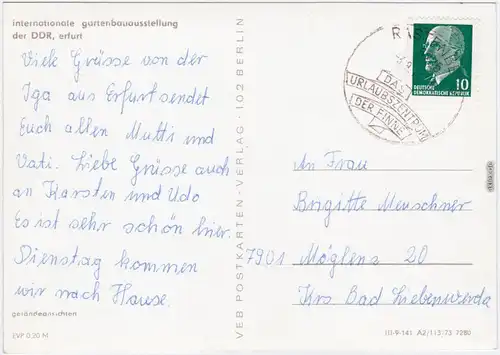 internationale gartenbauausstellung
der DDR, erfurt
Viele Grüsse von der
Iga aus Erfurt sendet
Euch allen Mutti und
Vati. Liebe Grüsse auch
an Karsten und Udo
Es ist sehr schön hier.
Dienstag kommen
wir nach Hause.
geländeansichten
EVP 0,20 M
VEB POSTKARTEN-VERLAG · 102 BERLIN
DAS
URLAUBSZENTRUM
DER FINNE
10
DEUTSCHE
DEMOKRATISCHE REPUBLIK
An Frau
Brigitte Meuschner
7901 Möglenz 20
Krs Bad Liebenwerda
III-9-141 A2/113/73 7280